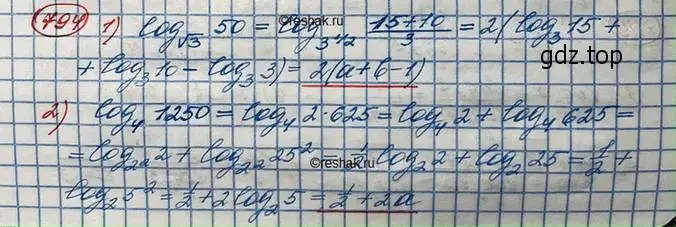 794 1) log_√3 50 = log_3^1/2 (15+10)/3 = 2(log_3 15 +
+ log_3 10 - log_3 3) = 2(a+b-1)
gdz.top
2) log_4 1250 = log_4 2·625 = log_4 2 + log_4 625 =
= log_22 2 + log_22 25² = 1/2 log_2 2 + log_2 25 = 1/2 +
log_2 5² = 1/2 + 2 log_2 5 = 1/2 + 2a
©Reshak.ru
©Reshak.ru